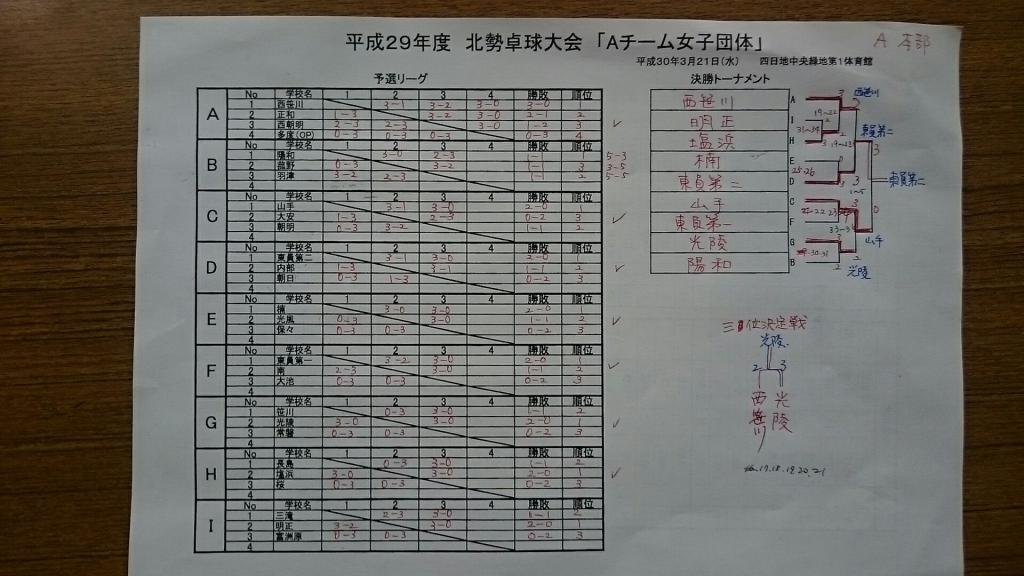 平成29年度 北勢卓球大会 「Aチーム女子団体」
A 本部
平成30年3月21日(水) 四日地中央緑地第1体育館
予選リーグ
A No 学校名 1 2 3 4 勝敗 順位
1 西笹川 3-1 3-2 3-0 3-0 1
2 正和 1-3 3-2 3-0 2-1 2
3 西朝明 2-3 2-3 3-0 1-2 3
4 多度(OP) 0-3 0-3 0-3 0-3 4
B No 学校名 1 2 3 4 勝敗 順位
1 陽和 3-0 2-3 1-1 1 5-3
2 菰野 0-3 3-2 1-1 3 3-5
3 羽津 3-2 2-3 1-1 2 5-5
4
C No 学校名 1 2 3 4 勝敗 順位
1 山手 3-1 3-0 2-0 1
2 大安 1-3 2-3 0-2 3
3 朝明 0-3 3-2 1-1 2
4
D No 学校名 1 2 3 4 勝敗 順位
1 東員第二 3-1 3-0 2-0 1
2 内部 1-3 3-1 1-1 2
3 朝日 0-3 1-3 0-2 3
4
E No 学校名 1 2 3 4 勝敗 順位
1 楠 3-0 3-0 2-0 1
2 光風 0-3 3-0 1-1 2
3 保々 0-3 0-3 0-2 3
4
F No 学校名 1 2 3 4 勝敗 順位
1 東員第一 3-2 3-0 2-0 1
2 南 2-3 3-0 1-1 2
3 大池 0-3 0-3 0-2 3
4
G No 学校名 1 2 3 4 勝敗 順位
1 笹川 0-3 3-0 1-1 2
2 光陵 3-0 3-0 2-0 1
3 常磐 0-3 0-3 0-2 3
4
H No 学校名 1 2 3 4 勝敗 順位
1 長島 0-3 3-0 1-1 2
2 塩浜 3-0 3-0 2-0 1
3 桜 0-3 0-3 0-2 3
4
I No 学校名 1 2 3 4 勝敗 順位
1 三滝 2-3 3-0 1-1 2
2 明正 3-2 3-0 2-0 1
3 富洲原 0-3 0-3 0-2 3
4
決勝トーナメント
西笹川 A
明正 I
塩浜 H
楠 E
東員第二 D
山手 C
東員第一 F
光陵 G
陽和 B
西笹川
東員第二
東員第二
山手
光陵
三位決定戦
光陵
2 3
西笹川
光陵
17.18.19.20.21